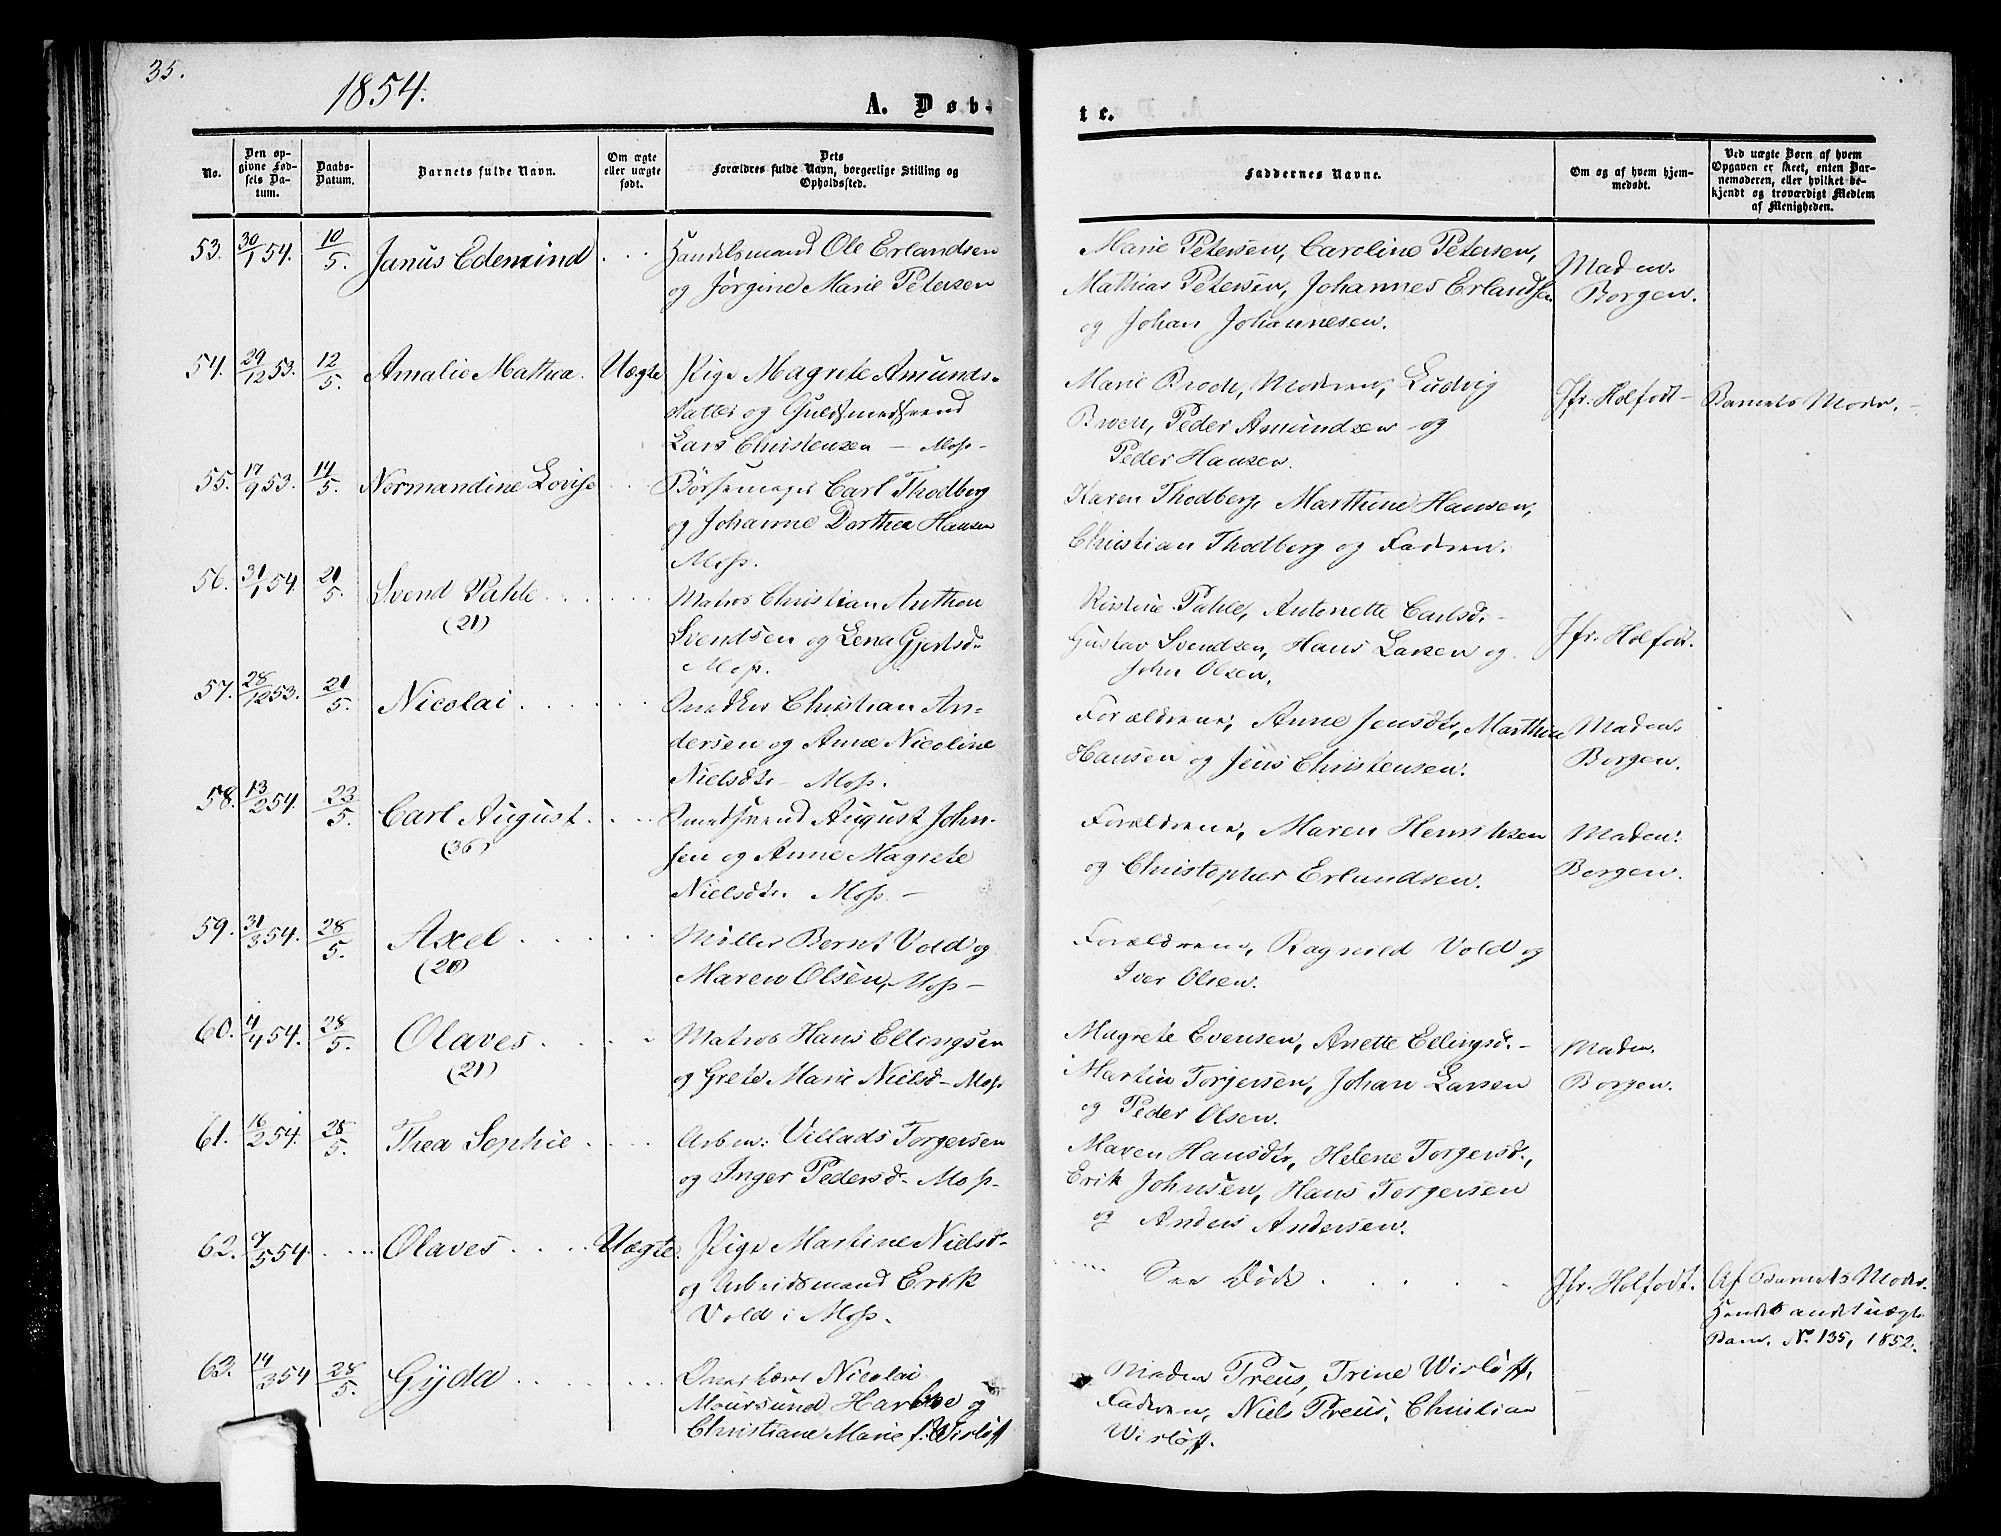 35.
1854.
A. Døb-
te.
No.
Den op-
givne Fød-
sels Da-
tum.
Daabs-
Datum.
Barnets fulde Navn.
Om ægte
eller uægte
født.
Dets
Forældres fulde Navn, borgerlige Stilling og
Opholdssted.
Faddernes Navne.
Om og af hvem hjem-
medøbt.
Ved uægte Børn af hvem
Opgaven er skeet, enten Bar-
nemoderen, eller hvilket be-
kjendt og troværdigt Medlem
af Menigheden.
53. 30/1 54. 10/5. Janus Edemind . . . Handelsmand Ole Erlandsen
og Jørgine Marie Petersen
Marie Petersen, Caroline Petersen,
Mathias Petersen, Johannes Erlandsen
og Johan Johannesen.
Madm.
Borgen.
54. 29/12 53. 12/5. Amalie Mathea. Uægte Pige Magrete Amunds-
datter og Guldsmedsvend
Lars Christensen - Moss -
Marie Broch, Moderen, Ludvig
Broch, Peder Amundsen og
Peder Hansen.
Jfr. Holfodt - Barnets Moder. -
55. 17/9 53. 14/5. Normandine Lovise . . Børsemager Carl Thodberg
og Johanne Dorthea Hansen
Moss.
Karen Thodberg, Marthine Hansen,
Christian Thodberg og Faderen.
56. 31/1 54. 21/5. Svend Pahle . . . . .
(21)
Matros Christian Anthon
Svendsen og Lena Gjertsd.
Moss.
Kirstine Pahle, Antonette Carlsd. -
Gustav Svendsen, Hans Larsen og
John Olsen.
Jfr. Holfodt.
57. 28/12 53. 21/5. Nicolai . . . . . .
Snedker Christian An-
dersen og Anne Nicoline
Nielsdtr - Moss.
Forældrene, Anne Jensdtr, Marthine
Hansen og Jens Christensen.
Madm.
Borgen.
58. 13/2 54. 23/5. Carl August . . . .
(36)
Smedsvend August John-
sen og Anne Magrete
Nielsdtr. Moss -
Forældrene, Maren Henriksen
og Christopher Erlandsen.
Madm.
Borgen.
59. 31/3 54. 28/5. Axel . . . . . .
(20)
Møller Bernt Vold og
Maren Olsen, Moss -
Forældrene, Ragnild Vold og
Iver Olsen.
60. 4/4 54. 28/5. Olaves . . . . .
(21)
Matros Hans Ellingsen
og Grete Marie Nielsd - Moss
Magrete Evensen, Anette Ellingsd. -
Martin Torgersen, Johan Larsen
og Peder Olsen.
Madm.
Borgen.
61. 16/2 54. 28/5. Thea Sophie . . . .
Arbm: Villads Torgersen
og Inger Pedersd - Moss -
Maren Hansdtr, Helene Torgersd.,
Erik Johnsen, Hans Torgersen
og Anders Andersen.
62. 7/5 54 . . . . Olaves . . . . Uægte. Pige Martine Nielsd -
og Arbeidsmand Erik
Vold i Moss.
Jfr. Holfodt. Af Barnets Moder.
Hendes andet uægte
Barn. No. 135, 1852.
63. 14/3 54 28/5. Gÿda . . . . . .
Nicolai
Moursund Harboe og
Christiane Marie f. Wisløff
Madm Preus, Trine Wisløff,
Faderen, Niels Preus, Christian
Wisløff.